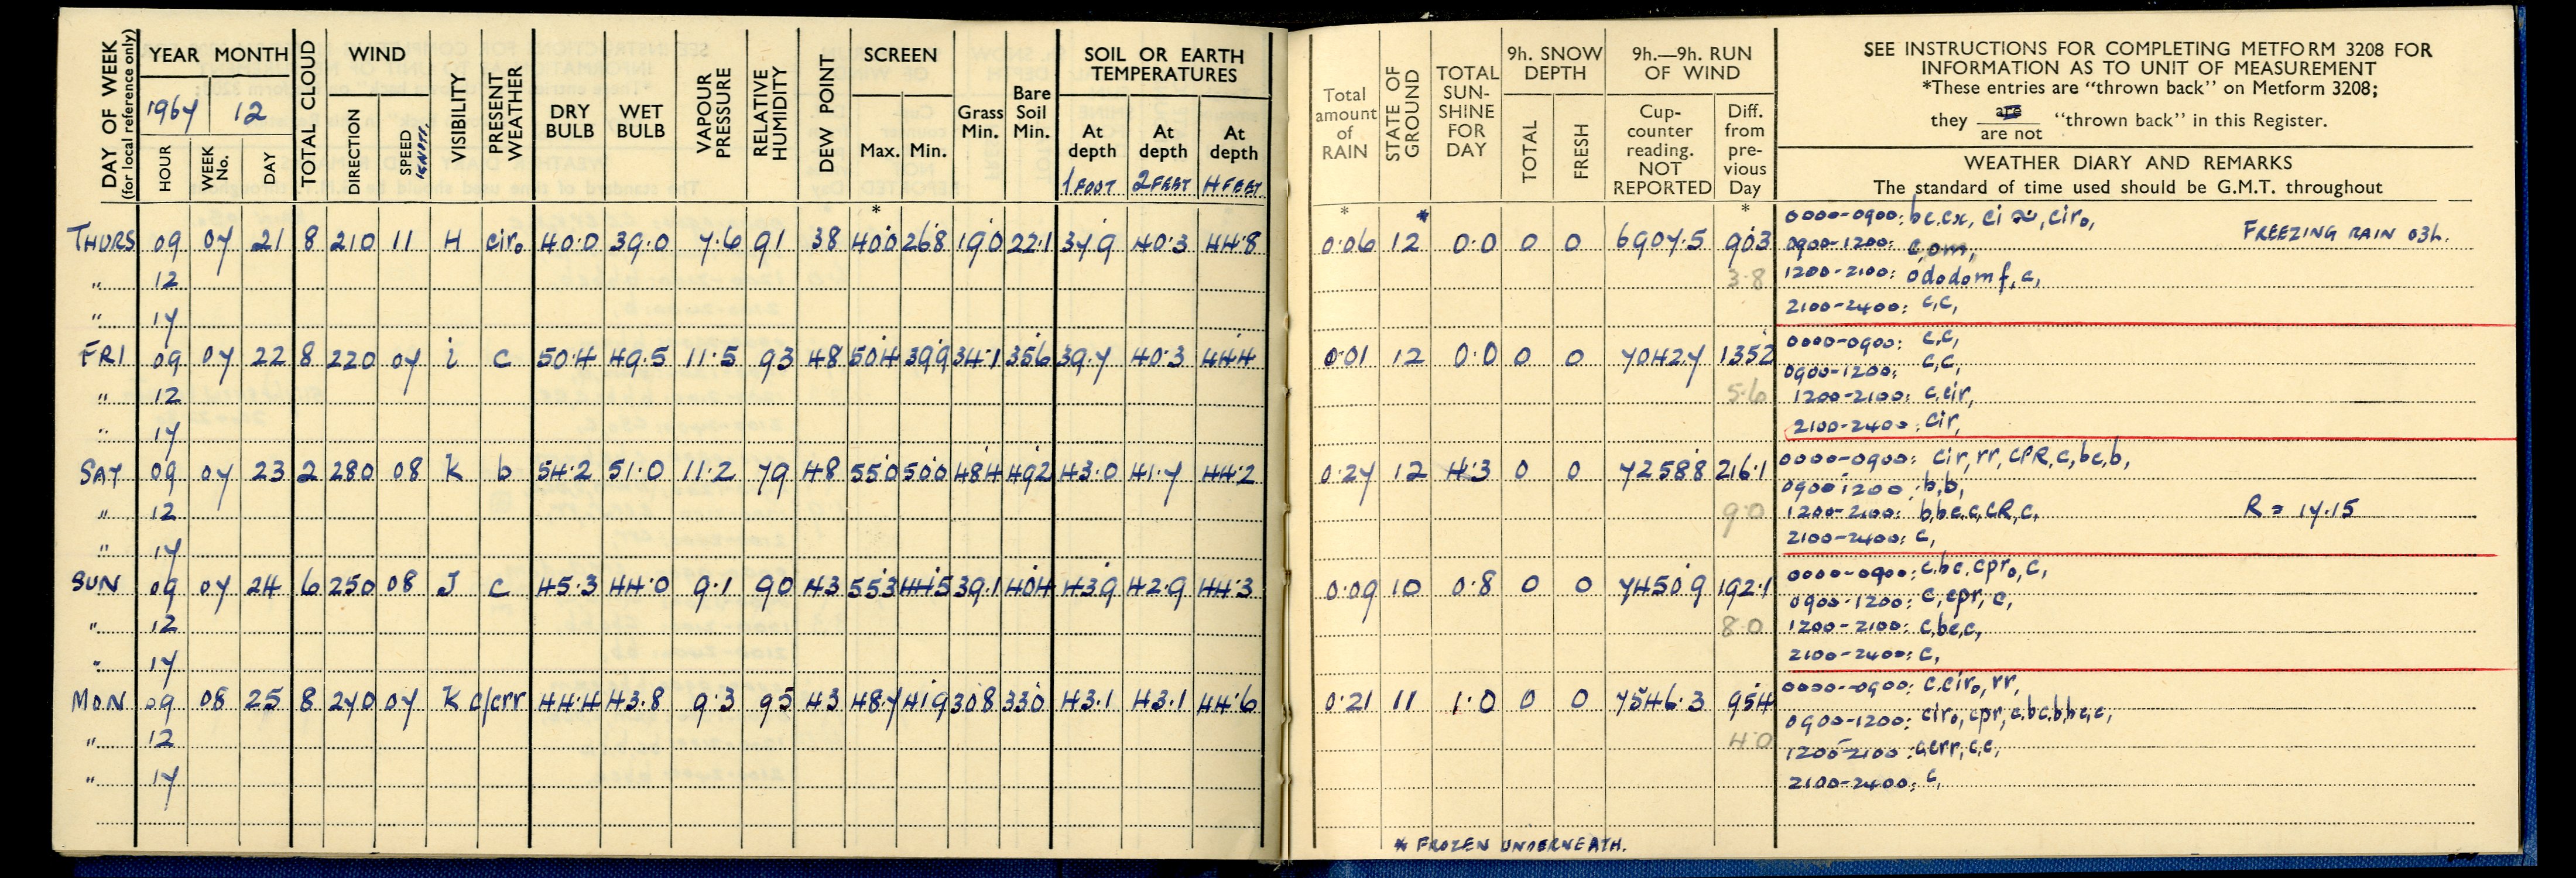 DAY OF WEEK
(for local reference only)
YEAR MONTH
1967 12
HOUR
WEEK No.
DAY
TOTAL CLOUD
WIND
DIRECTION
SPEED
KNOTS.
VISIBILITY
PRESENT WEATHER
DRY BULB
WET BULB
VAPOUR PRESSURE
RELATIVE HUMIDITY
DEW POINT
SCREEN
Max. Min.
Grass Min.
Bare Soil Min.
SOIL OR EARTH TEMPERATURES
At depth 1 FOOT
At depth 2 FEET
At depth 4 FEET
Total amount of RAIN
STATE OF GROUND
TOTAL SUN-SHINE FOR DAY
9h. SNOW DEPTH
TOTAL
FRESH
9h.—9h. RUN OF WIND
Cup-counter reading. NOT REPORTED
Diff. from pre-vious Day
SEE INSTRUCTIONS FOR COMPLETING METFORM 3208 FOR
INFORMATION AS TO UNIT OF MEASUREMENT
*These entries are "thrown back" on Metform 3208;
they are / are not "thrown back" in this Register.
WEATHER DIARY AND REMARKS
The standard of time used should be G.M.T. throughout
* * * *
THURS 09 07 21 8 210 11 H ciro 40.0 39.0 7.6 91 38 40.0 26.8 19.0 22.1 37.9 40.3 44.8 0.06 12 0.0 0 0 6907.5 90.3
0000-0900: bc.cx, ci ~, ciro,
FREEZING RAIN 03h.
0900-1200: c,om,
" 12 3.8
1200-2100: ododomf, c,
" 17
2100-2400: c,c,
FRI 09 07 22 8 220 07 i c 50.4 49.5 11.5 93 48 50.4 39.9 34.1 35.6 39.7 40.3 44.4 0.01 12 0.0 0 0 7042.7 135.2
0000-0900: c,c,
0900-1200: c,c,
" 12 5.6
1200-2100: c,cir,
" 17
2100-2400: cir,
SAT 09 07 23 2 280 08 K b 54.2 51.0 11.2 79 48 55.0 50.0 48.4 49.2 43.0 41.7 44.2 0.27 12 4.3 0 0 7258.8 216.1
0000-0900: cir,rr,CPR,c,bc,b,
0900-1200: b,b,
" 12 9.0
1200-2100: b,bc,c,CR,c,
R = 17.15
" 17
2100-2400: c,
SUN 09 07 24 6 250 08 J c 45.3 44.0 9.1 90 43 55.3 44.5 39.1 40.4 43.9 42.9 44.3 0.09 10 0.8 0 0 7450.9 192.1
0000-0900: c.bc.cpro,c,
0900-1200: c,cpr, c,
" 12 8.0
1200-2100: c,bc,c,
" 17
2100-2400: c,
MON 09 08 25 8 270 07 K c/crr 44.4 43.8 9.3 95 43 48.7 41.9 30.8 33.0 43.1 43.1 44.6 0.21 11 1.0 0 0 7546.3 95.4
0000-0900: c.ciro,rr,
0900-1200: ciro,cpr,c.bc.b,bc,c,
" 12 4.0
1200-2100: c,crr,c,c,
" 17
2100-2400: c,
* FROZEN UNDERNEATH.